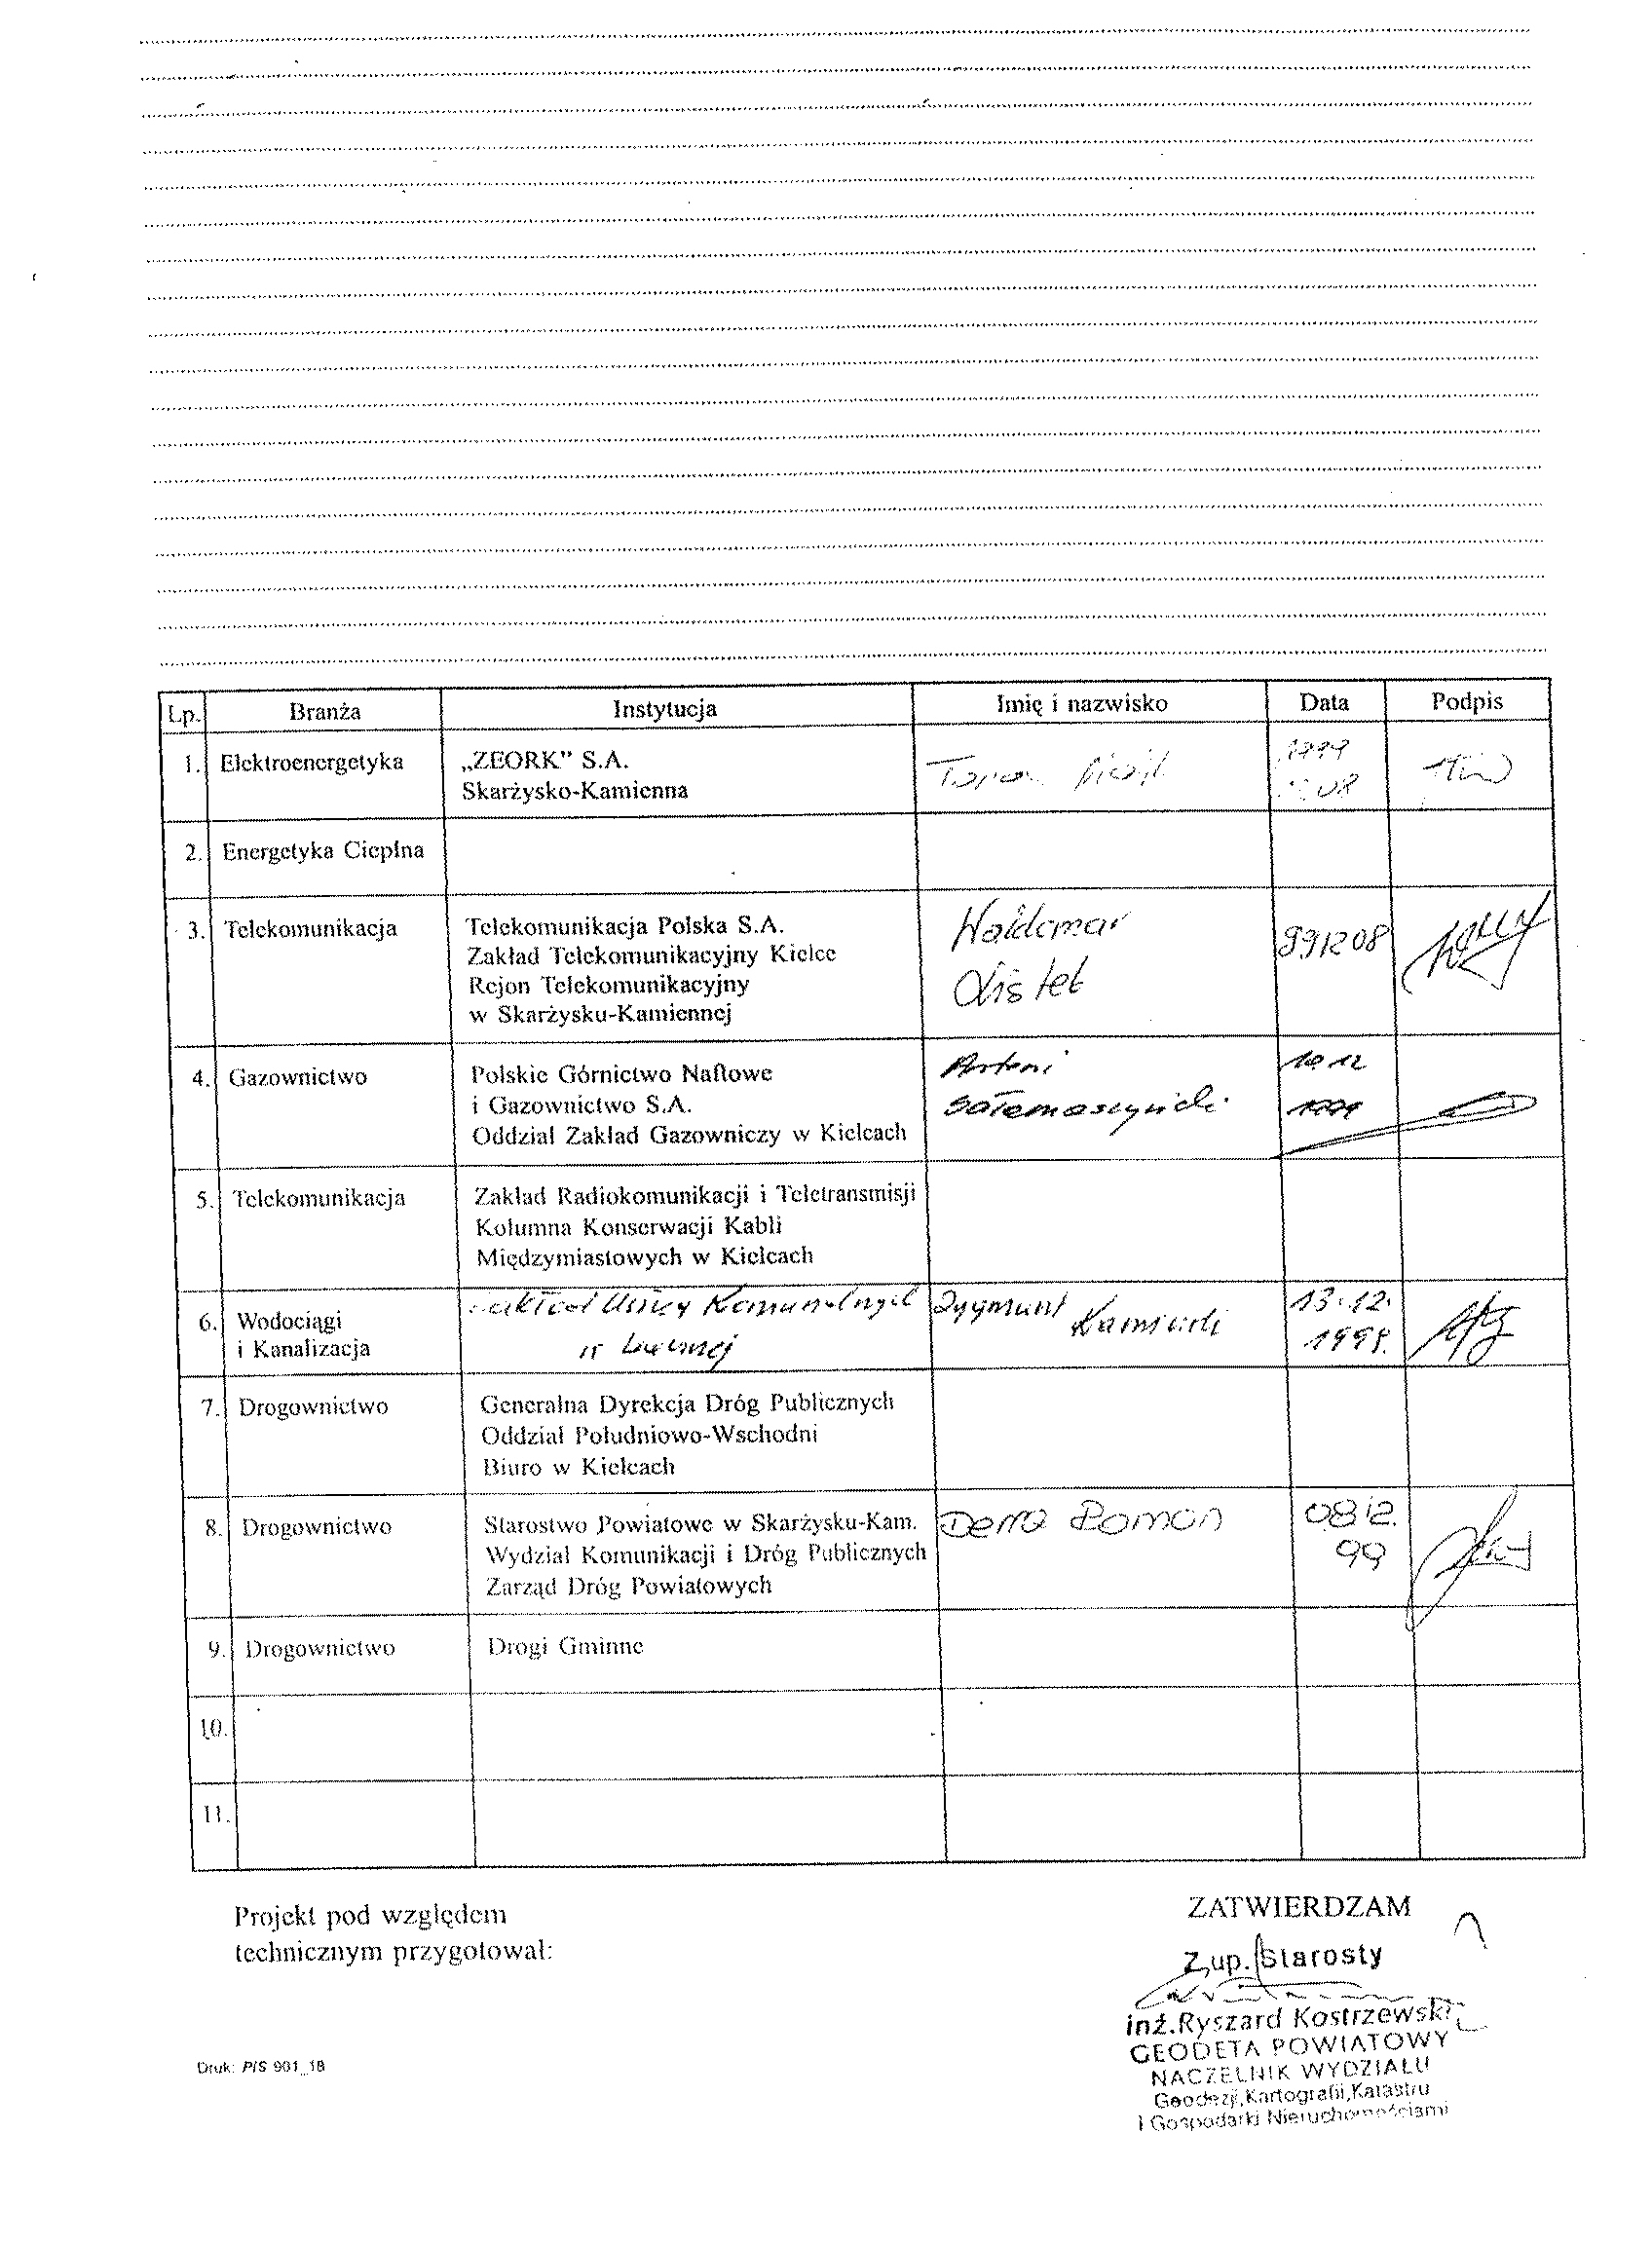 Lp. Branża Instytucja Imię i nazwisko Data Podpis
1. Elektroenergetyka „ZEORK” S.A. 1999
Skarżysko-Kamienna 08
2. Energetyka Cieplna
3. Telekomunikacja Telekomunikacja Polska S.A. Waldemar 991208
Zakład Telekomunikacyjny Kielce
Rejon Telekomunikacyjny
w Skarżysku-Kamiennej
4. Gazownictwo Polskie Górnictwo Naftowe Antoni 10 12
i Gazownictwo S.A. 1999
Oddział Zakład Gazowniczy w Kielcach
5. Telekomunikacja Zakład Radiokomunikacji i Teletransmisji
Kolumna Konserwacji Kabli
Międzymiastowych w Kielcach
6. Wodociągi Zygmunt Kamiński 13.12.
i Kanalizacja w 1999.
7. Drogownictwo Generalna Dyrekcja Dróg Publicznych
Oddział Południowo-Wschodni
Biuro w Kielcach
8. Drogownictwo Starostwo Powiatowe w Skarżysku-Kam. Derra Roman 0812.
Wydział Komunikacji i Dróg Publicznych 99
Zarząd Dróg Powiatowych
9. Drogownictwo Drogi Gminne
10.
11.
Projekt pod względem
technicznym przygotował:
ZATWIERDZAM
Z up. Starosty
inż.Ryszard Kostrzewski
GEODETA POWIATOWY
NACZELNIK WYDZIAŁU
Geodezji,Kartografii,Katastru
i Gospodarki Nieruchomościami
Druk: PIS 901_18